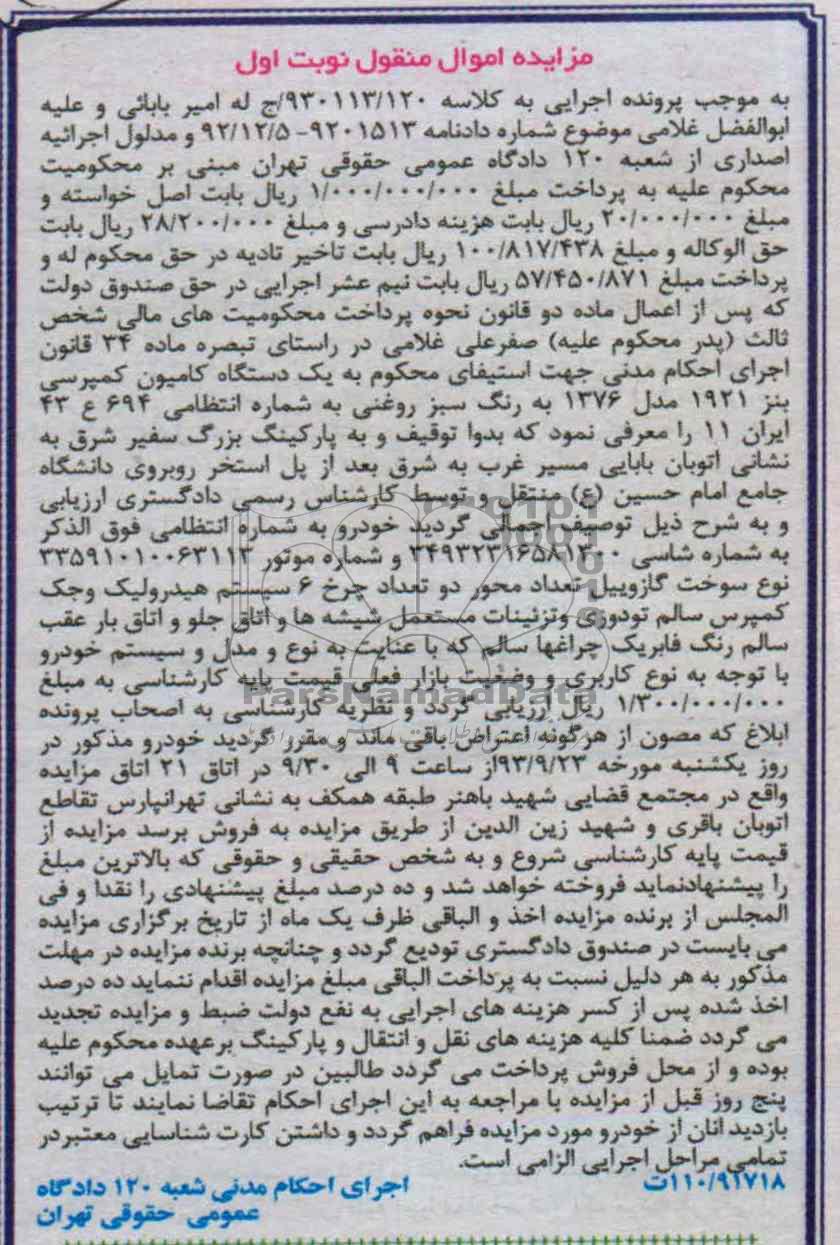 مزایده اموال منقول نوبت اول
به موجب پرونده اجرایی به کلاسه ۹۳۰۱۱۳/۱۲۰/ج له امیر بابائی و علیه
ابوالفضل غلامی موضوع شماره دادنامه ۹۲۰۱۵۱۳- ۹۲/۱۲/۵ و مدلول اجرائیه
اصداری از شعبه ۱۲۰ دادگاه عمومی حقوقی تهران مبنی بر محکومیت
محکوم علیه به پرداخت مبلغ ۱/۰۰۰/۰۰۰/۰۰۰ ریال بابت اصل خواسته و
مبلغ ۲۰/۰۰۰/۰۰۰ ریال بابت هزینه دادرسی و مبلغ ۲۸/۲۰۰/۰۰۰ ریال بابت
حق الوکاله و مبلغ ۱۰۰/۸۱۷/۴۳۸ ریال بابت تاخیر تادیه در حق محکوم له و
پرداخت مبلغ ۵۷/۴۵۰/۸۷۱ ریال بابت نیم عشر اجرایی در حق صندوق دولت
که پس از اعمال ماده دو قانون نحوه پرداخت محکومیت های مالی شخص
ثالث (پدر محکوم علیه) صفرعلی غلامی در راستای تبصره ماده ۳۴ قانون
اجرای احکام مدنی جهت استیفای محکوم به یک دستگاه کامیون کمپرسی
بنز ۱۹۲۱ مدل ۱۳۷۶ به رنگ سبز روغنی به شماره انتظامی ۶۹۴ ع ۴۳
ایران ۱۱ را معرفی نمود که بدوا توقیف و به پارکینگ بزرگ سفیر شرق به
نشانی اتوبان بابایی مسیر غرب به شرق بعد از پل استخر روبروی دانشگاه
جامع امام حسین (ع) منتقل و توسط کارشناس رسمی دادگستری ارزیابی
و به شرح ذیل توصیف اجمالی گردید خودرو به شماره انتظامی فوق الذکر
به شماره شاسی ۳۴۹۳۲۳۱۶۵۸۱۳۰۰ و شماره موتور ۳۳۵۹۱۰۱۰۰۶۳۱۱۳
نوع سوخت گازوییل تعداد محور دو تعداد چرخ ۶ سیستم هیدرولیک وجک
کمپرس سالم تودوزی وتزئینات مستعمل شیشه ها و اتاق جلو و اتاق بار عقب
سالم رنگ فابریک چراغها سالم که با عنایت به نوع و مدل و سیستم خودرو
با توجه به نوع کاربری و وضعیت بازار فعلی قیمت پایه کارشناسی به مبلغ
۱/۳۰۰/۰۰۰/۰۰۰ ریال ارزیابی گردد و نظریه کارشناسی به اصحاب پرونده
ParsNamadData
ابلاغ که مصون از هرگونه اعتراض باقی ماند و مقرر گردید خودرو مذکور در
روز یکشنبه مورخه ۹۳/۹/۲۳از ساعت ۹ الی ۹/۳۰ در اتاق ۲۱ اتاق مزایده
واقع در مجتمع قضایی شهید باهنر طبقه همکف به نشانی تهرانپارس تقاطع
اتوبان باقری و شهید زین الدین از طریق مزایده به فروش برسد مزایده از
قیمت پایه کارشناسی شروع و به شخص حقیقی و حقوقی که بالاترین مبلغ
را پیشنهادنماید فروخته خواهد شد و ده درصد مبلغ پیشنهادی را نقدا و فی
المجلس از برنده مزایده اخذ و الباقی ظرف یک ماه از تاریخ برگزاری مزایده
می بایست در صندوق دادگستری تودیع گردد و چنانچه برنده مزایده در مهلت
مذکور به هر دلیل نسبت به پرداخت الباقی مبلغ مزایده اقدام ننماید ده درصد
اخذ شده پس از کسر هزینه های اجرایی به نفع دولت ضبط و مزایده تجدید
می گردد ضمنا کلیه هزینه های نقل و انتقال و پارکینگ برعهده محکوم علیه
بوده و از محل فروش پرداخت می گردد طالبین در صورت تمایل می توانند
پنج روز قبل از مزایده با مراجعه به این اجرای احکام تقاضا نمایند تا ترتیب
بازدید انان از خودرو مورد مزایده فراهم گردد و داشتن کارت شناسایی معتبردر
تمامی مراحل اجرایی الزامی است.
۱۱۰/۹۱۷۱۸ت
اجرای احکام مدنی شعبه ۱۲۰ دادگاه
عمومی حقوقی تهران